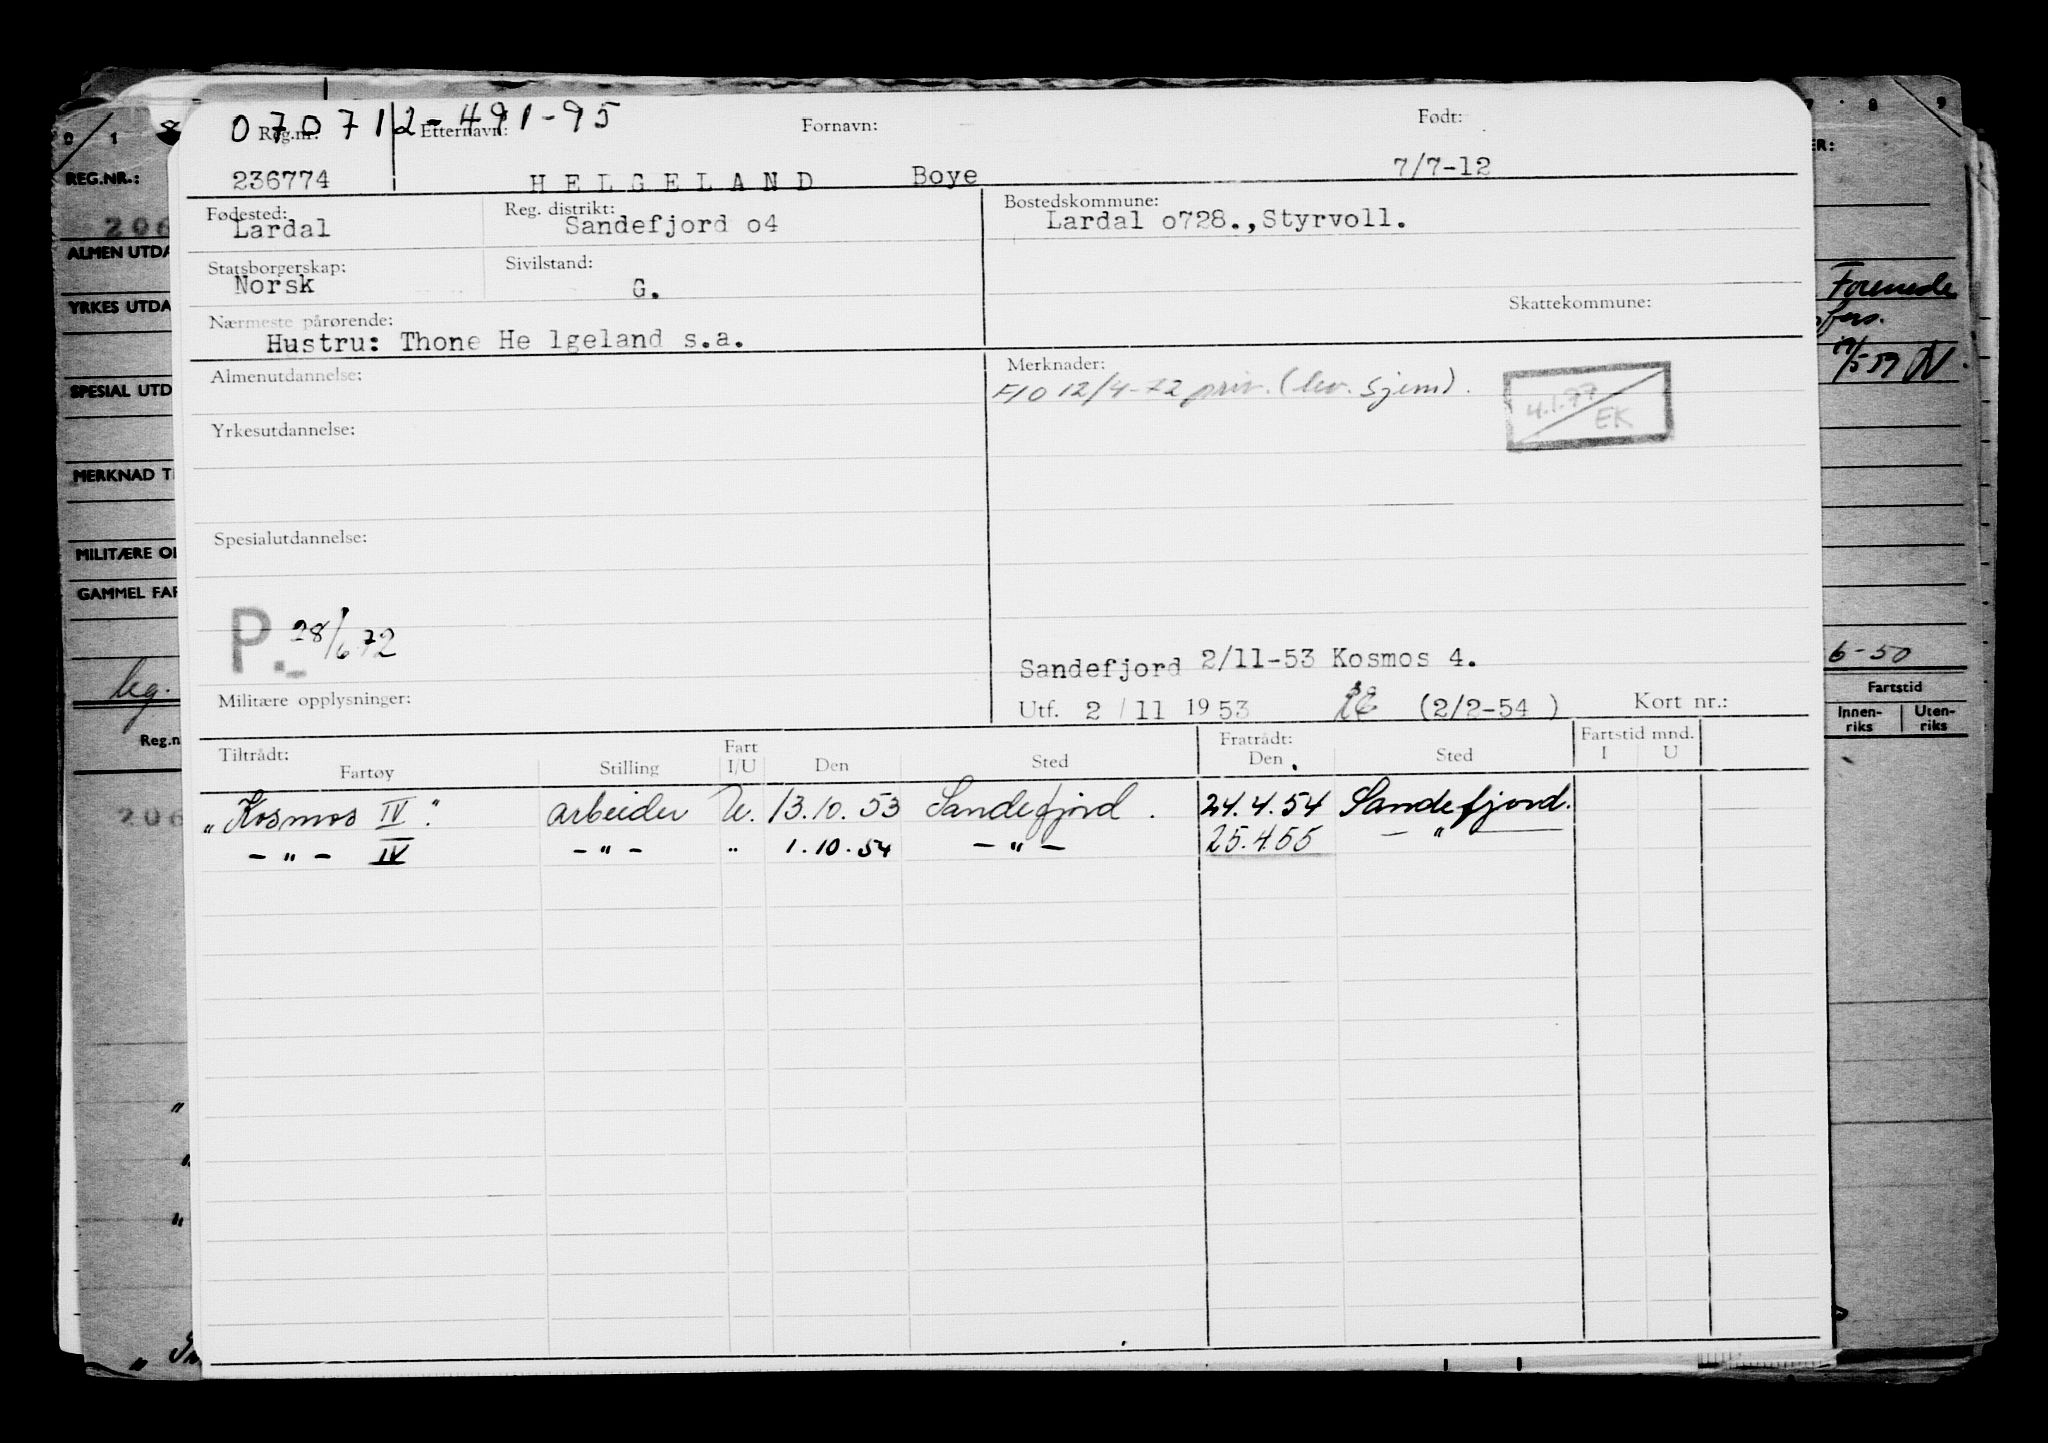 070712-491-95
Reg.nr. Etternavn: Fornavn: Født:
236774 HELGELAND Boye 7/7-12
Fødested: Reg. distrikt: Bostedskommune:
Lardal Sandefjord o4 Lardal o728.,Styrvoll.
Statsborgerskap: Sivilstand:
Norsk G.
Skattekommune:
Nærmeste pårørende:
Hustru: Thone He lgeland s.a.
Almenutdannelse: Merknader:
12/4-72 priv. (lev. Sjem).
4.1.77
EK
Yrkesutdannelse:
Spesialutdannelse:
P.- 28/6 72
Sandefjord 2/11-53 Kosmos 4.
Militære opplysninger: Utf. 2 / 11 1953 (2/2-54 ) Kort nr.:
Tiltrådt: Fart Fratrådt: Fartstid mnd.
Fartøy Stilling I/U Den Sted Den Sted I U
"Kosmos IV". arbeider U. 13.10.53 Sandefjord. 24.4.54 Sandefjord.
- " - IV - " - " 1.10.54 - " - 25.4.55 - " -
REG.NR.:
206
ALMEN UTDA
YRKES UTDA
SPESIAL UTD
MERKNAD T
MILITÆRE O
GAMMEL FAR
Reg.n
206
7 8 9
ER:
Forenede
19/5 59
6-50
Fartstid
Innen-riks Uten-riks